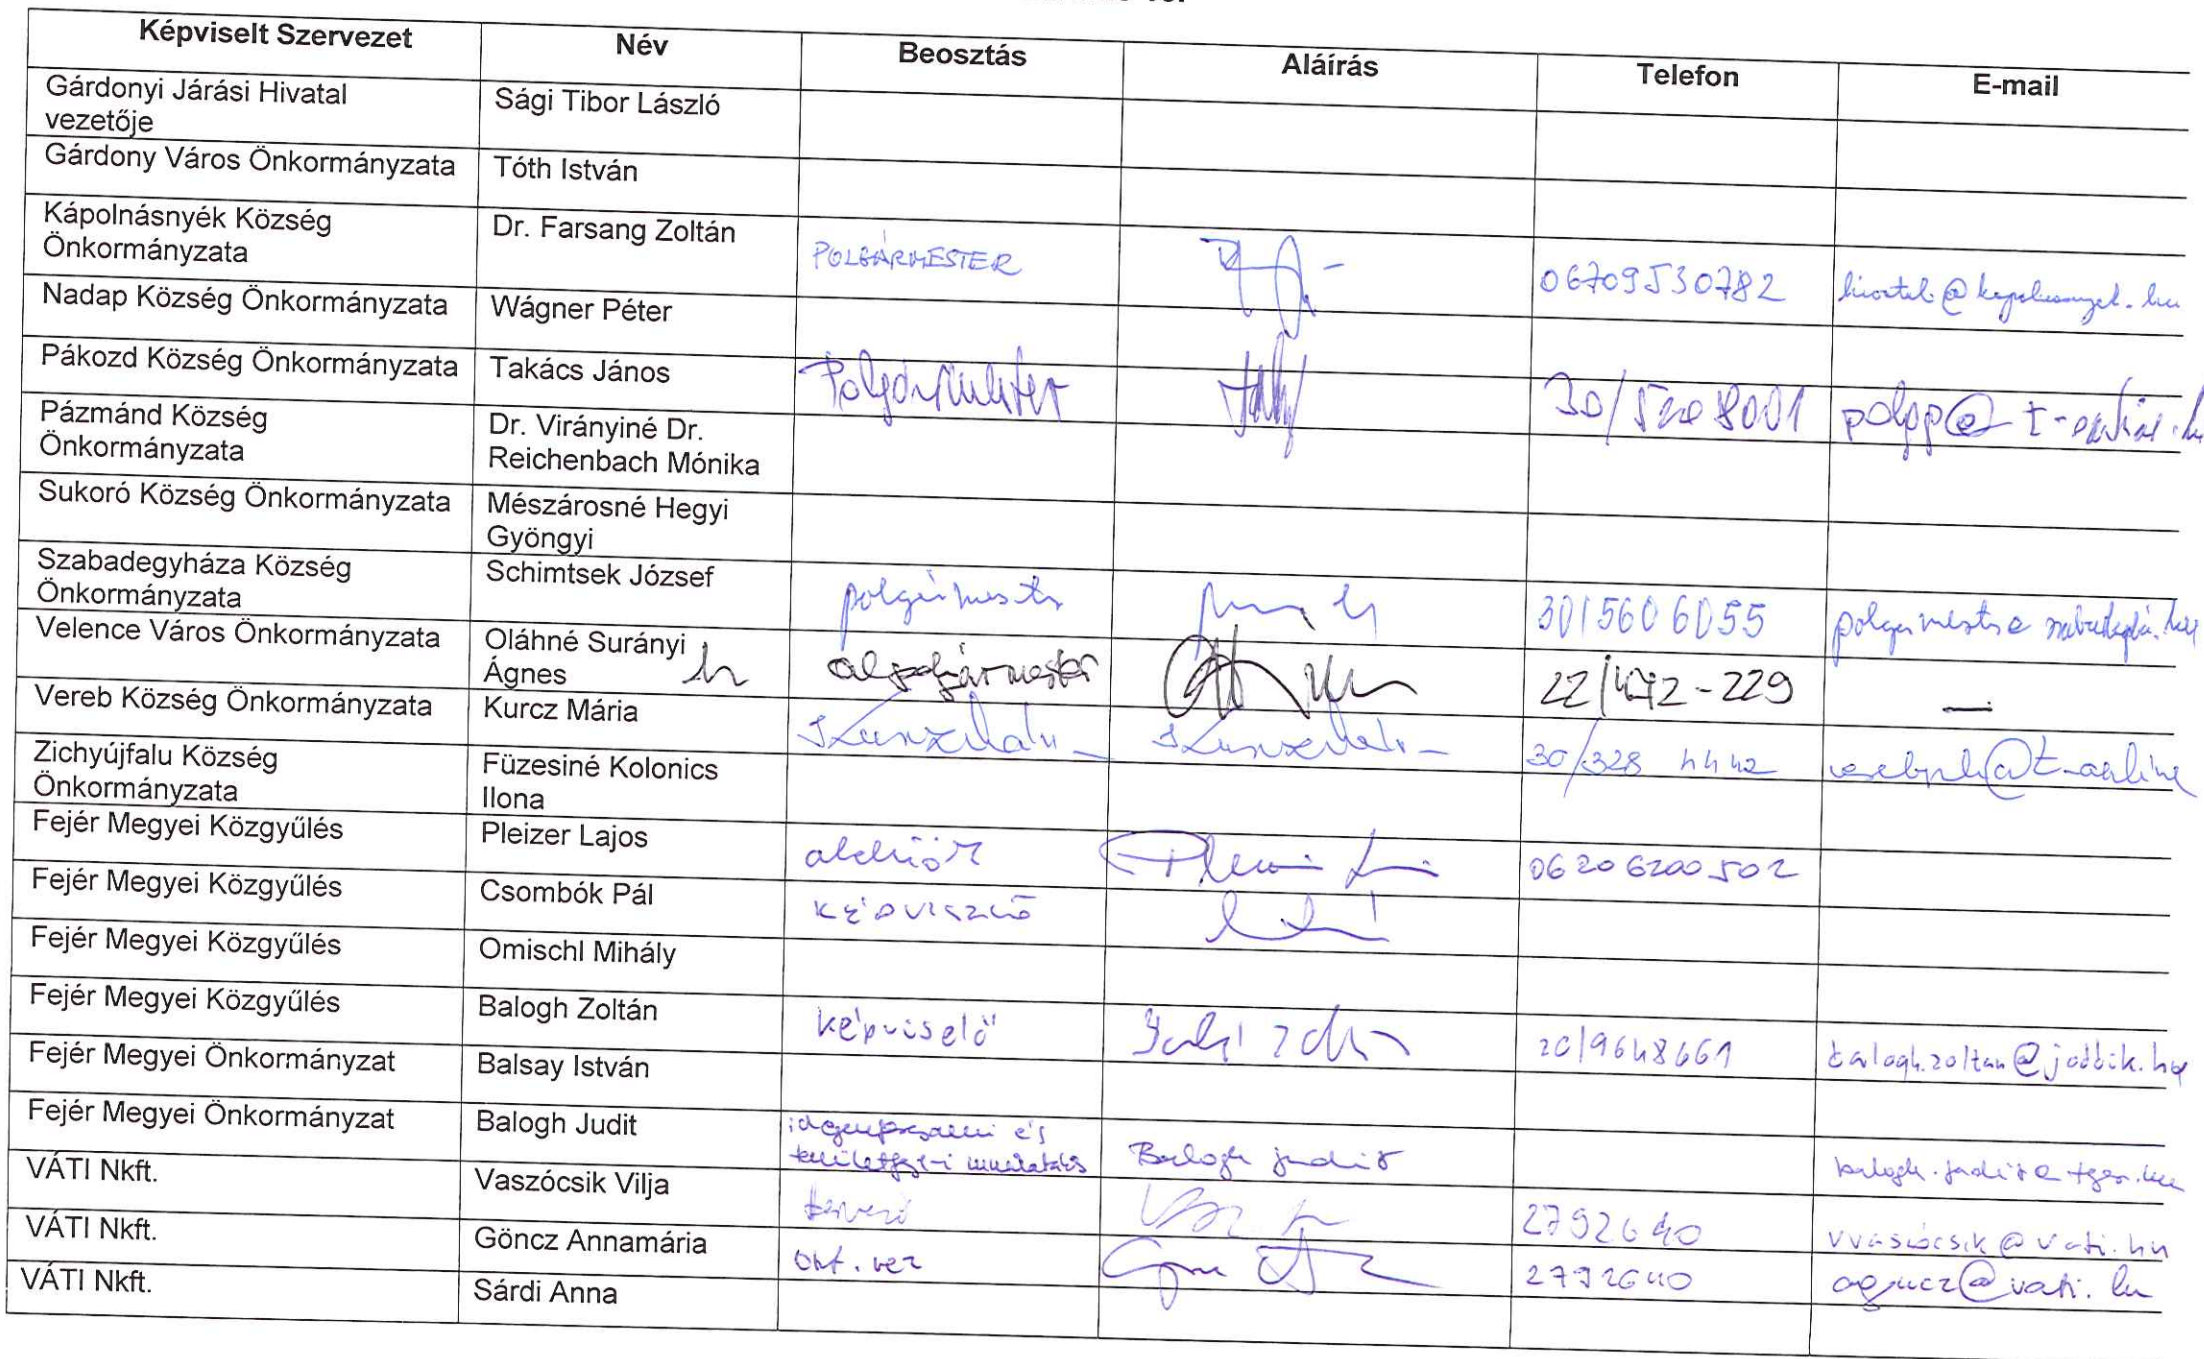 Képviselt Szervezet Név Beosztás Aláírás Telefon E-mail
Gárdonyi Járási Hivatal vezetője Sági Tibor László
Gárdony Város Önkormányzata Tóth István
Kápolnásnyék Község Önkormányzata Dr. Farsang Zoltán POLGÁRMESTER 06709530782
Nadap Község Önkormányzata Wágner Péter
Pákozd Község Önkormányzata Takács János Polgármester
Pázmánd Község Önkormányzata Dr. Virányiné Dr. Reichenbach Mónika
Sukoró Község Önkormányzata Mészárosné Hegyi Gyöngyi
Szabadegyháza Község Önkormányzata Schimtsek József polgármester 30/5606055
Velence Város Önkormányzata Oláhné Surányi Ágnes h alpolgármester 22/472-229 —
Vereb Község Önkormányzata Kurcz Mária 30/328 4442
Zichyújfalu Község Önkormányzata Füzesiné Kolonics Ilona
Fejér Megyei Közgyűlés Pleizer Lajos alelnök 06206200502
Fejér Megyei Közgyűlés Csombók Pál képviselő
Fejér Megyei Közgyűlés Omischl Mihály
Fejér Megyei Közgyűlés Balogh Zoltán képviselő 20/9648661 balogh.zoltan@jobbik.hu
Fejér Megyei Önkormányzat Balsay István
Fejér Megyei Önkormányzat Balogh Judit és Balogh Judit
VÁTI Nkft. Vaszócsik Vilja tervező 2792640 vvaszocsik@vati.hu
VÁTI Nkft. Göncz Annamária 2792640 agoncz@vati.hu
VÁTI Nkft. Sárdi Anna